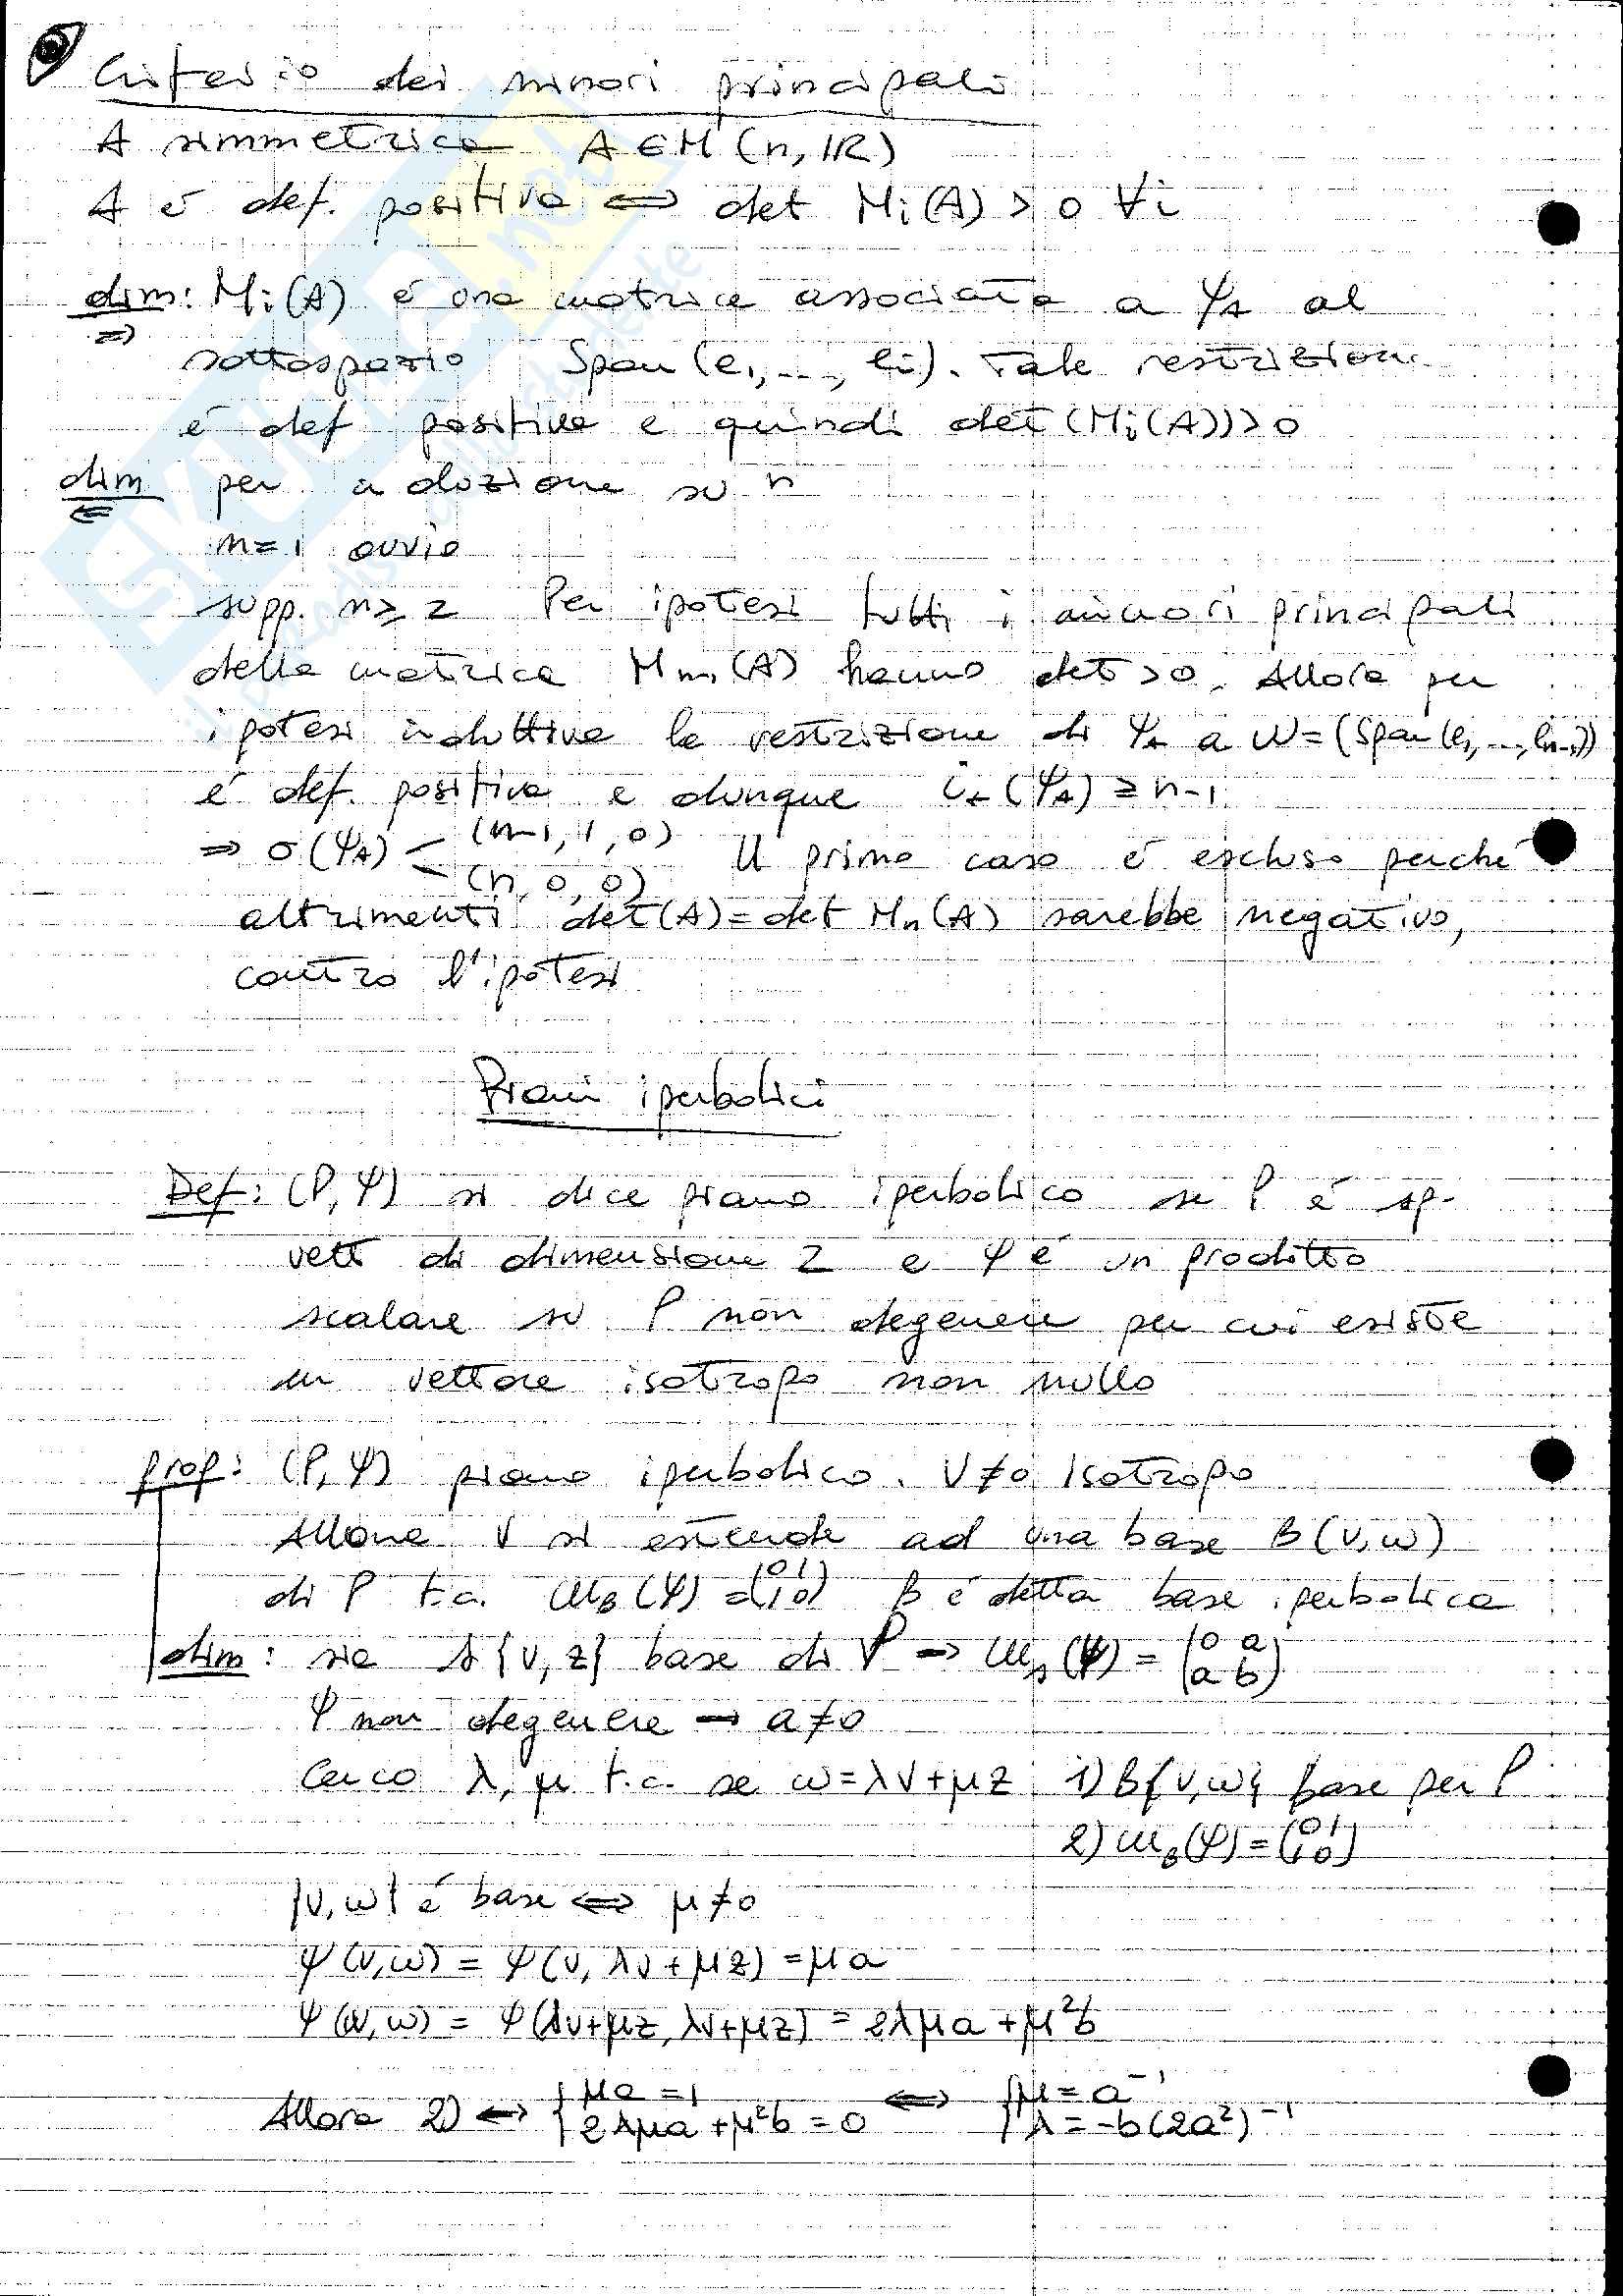 Criterio dei minori principali
A simmetrica A ∈ M (n, ℝ)
A è def. positiva ⟺ det Mi(A) > 0 ∀i
dim: Mi(A) è una matrice associata a ψA al
⇒) sottospazio Span (e1, ..., ei). Tale restrizion.
è def positiva e quindi det (Mi(A)) > 0
dim per induzione su n
⇐ n=1 ovvio
supp. n ≥ 2 Per ipotesi tutti i minori principali
della matrice Mn-1(A) hanno det > 0. Allora per
ipotesi induttiva la restrizione di ψA a W = (Span (e1, ..., en-1))
è def. positiva e dunque i+ (ψA) ≥ n-1
⇒ σ(ψA) < (n-1, 1, 0) (n, 0, 0) Il primo caso è escluso perché
altrimenti det(A) = det Mn(A) sarebbe negativo,
contro l'ipotesi
Piani iperbolici
Def: (P, ψ) si dice piano iperbolico se P è sp.
vett di dimensione 2 e ψ è un prodotto
scalare su P non degenere per cui esiste
un vettore isotropo non nullo
prop: (P, ψ) piano iperbolico. v ≠ 0 isotropo
Allora v si estende ad una base B (v, w)
di P t.c. MB (ψ) = (0 1 / 1 0) B è detta base iperbolica
dim: sia S {v, z} base di P → MS (ψ) = (0 a / a b)
ψ non degenere → a ≠ 0
Cerco λ, μ t.c. se w = λv + μz 1) B {v, w} base per P
2) MB (ψ) = (0 1 / 1 0)
{v, w} è base ⟺ μ ≠ 0
ψ (v, w) = ψ (v, λv + μz) = μa
ψ (w, w) = ψ (λv + μz, λv + μz) = 2λμa + μ²b
Allora 2) ↔ { μa = 1 / 2λμa + μ²b = 0 ⟺ { μ = a⁻¹ / λ = -b(2a²)⁻¹